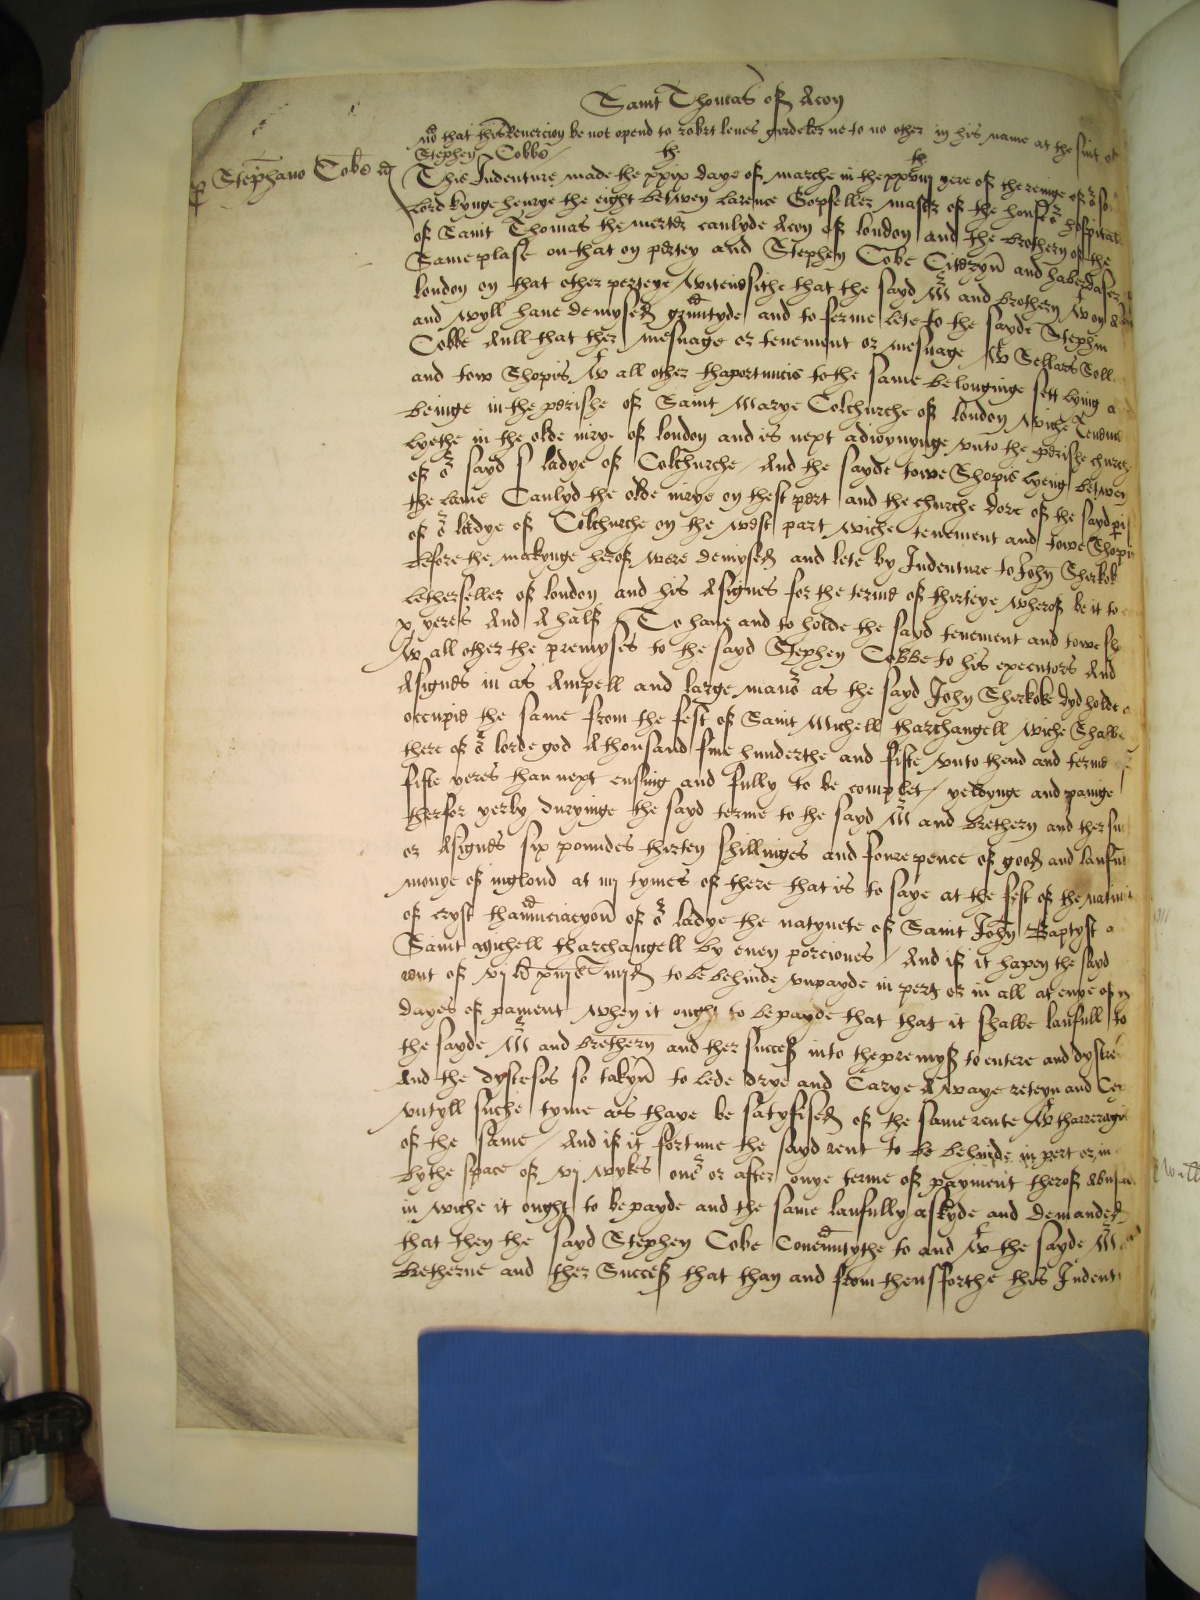 Saint Thomas of Acon
no that this Revercion be not opend to robrt leues girdeler ne to no other in his name at the sute of
Stephen Cobbe
p Stephano Cobe
This Indenture made the xxix daye of marche in the xxviij th yere of the reinge of or so
lord kynge henrye the eight betwen larence Gopfeller master of the house & hospitall
of Saint Thomas the merter caulyde Acon of london and the brothern of the
Same plase on that on pertey and Stephen Cobe Citezyn and haberdasser
london on that other perteye Witensithe that the sayd Mr and brothern Wt on
and wyll haue demysed grauntyde and to ferme lete to the sayde Stephin
Cobbe Aull that ther mesuage or tenement or mesuage Wt Sellars Soll
and tow Shopis Wt all other thaportuncis to the same belonginge sett lying a
beinge in the perishe of Saint Marye Colchurche of london Wiche Tenem
lyethe in the olde iurye of london and is next adioynynge vnto the perishe church
of or sayd s ladye of Colchurche / And the sayde towe Shopis lyeng betwen
the lane Caulyd the olde iurye on thest pert and the churche dore of the sayd
of or ladye of Colchurche on the west part wiche tenement and towe Shopis
before the mackynge herof were demysed and lete by Indenture to John Sherkok
letherseller of london and his Asignes for the terme of thirteye wherof be it to
x yeres And A half To haue and to holde the sayd tenement and towe sh
Wt all other the premyses to the sayd Stephen Cobbe to his executors And
Asignes in as Ampell and large maner as the sayd John Sherkoke dyd holde
occupie the same from the fest of Saint Michell tharchangell wiche Shalbe
there of or lorde god A thousand fiue hunderthe and fifte vnto thend and terme
fifte yeres than next ensuing and fully to be complet / yeldynge and painge
therfor yerly durynge the sayd terme to the sayd Mr and brethern and ther su
or Asignes six poundes thirten shillinges and foure pence of good and laufu
monye of inglond at iiij tymes of there that is to saye at the fest of the natiui
of cryst thannunciacyon of or ladye the natyuete of Saint John Baptyst a
Saint Michell tharchangell by euen porciones / And if it hapen the sayd
rent of vj li xiij s iiij d to be behinde vnpayde in pert or in all at enye of
dayes of pament when it ought to be payde that that it shalbe laufull to
the sayde Mr and brethern and ther success into the premyss to entere and dystre
And the dystreses so takyn to lede dryue and Carye Awaye reteyn and
vntyll suche tyme as thaye be satyfised of the same rente Wt tharreragis
of the same / And if it fortune the sayd rent to be behinde in pert or in
by the space of vj wykes ouer or after onye terme of payment therof
in wiche it ought to be payde and the same laufully askyde and demanded
that then the sayd Stephen Cobe Couenuntythe to and Wt the sayde Mr
Bretherne and ther Success that than and from thensforthe this Indent